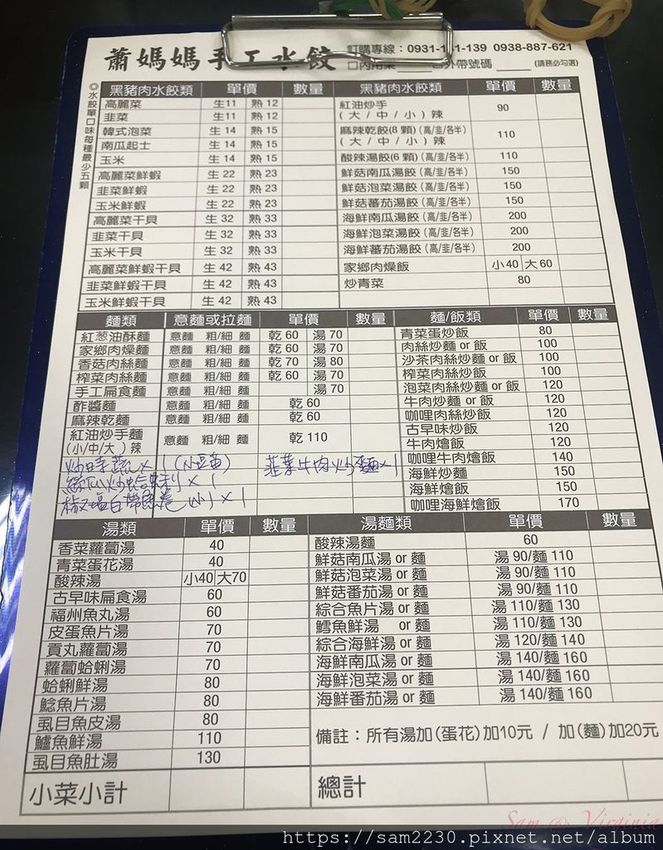 蕭媽媽手工水餃
訂購專線：0931- -139 0938-887-621
外帶號碼 (請務必勾選)
◎水餃單口味每種最少五顆
黑豬肉水餃類 單價 數量
高麗菜 生11 熟12
韭菜 生11 熟12
韓式泡菜 生14 熟15
南瓜起士 生14 熟15
玉米 生14 熟15
高麗菜鮮蝦 生22 熟23
韭菜鮮蝦 生22 熟23
玉米鮮蝦 生22 熟23
高麗菜干貝 生32 熟33
韭菜干貝 生32 熟33
玉米干貝 生32 熟33
高麗菜鮮蝦干貝 生42 熟43
韭菜鮮蝦干貝 生42 熟43
玉米鮮蝦干貝 生42 熟43
黑豬肉水餃類 單價 數量
紅油炒手
(大/中/小)辣 90
麻辣乾餃(8顆)(高/韭/各半)
(大/中/小)辣 110
酸辣湯餃(6顆)(高/韭/各半) 110
鮮菇南瓜湯餃(高/韭/各半) 150
鮮菇泡菜湯餃(高/韭/各半) 150
鮮菇蕃茄湯餃(高/韭/各半) 150
海鮮南瓜湯餃(高/韭/各半) 200
海鮮泡菜湯餃(高/韭/各半) 200
海鮮蕃茄湯餃(高/韭/各半) 200
家鄉肉燥飯 小40 大60
炒青菜 80
麵類 意麵或拉麵 單價 數量
紅葱油酥麵 意麵 粗/細 麵 乾60 湯70
家鄉肉燥麵 意麵 粗/細 麵 乾60 湯70
香菇肉絲麵 意麵 粗/細 麵 乾70 湯80
榨菜肉絲麵 意麵 粗/細 麵 乾60 湯70
手工扁食麵 意麵 粗/細 麵 湯70
酢醬麵 意麵 粗/細 麵 乾60
麻辣乾麵 意麵 粗/細 麵 乾60
紅油炒手麵
(小/中/大)辣 意麵 粗/細 麵 乾110
炒時蔬×1 韭菜牛肉炒麵×1
絲瓜炒蛤蜊×1
麵/飯類 單價 數量
青菜蛋炒飯 80
肉絲炒麵 or 飯 100
沙茶肉絲炒麵 or 飯 100
榨菜肉絲炒飯 100
泡菜肉絲炒麵 or 飯 120
牛肉炒麵 or 飯 120
咖哩肉絲炒飯 120
古早味炒飯 120
牛肉燴飯 120
咖哩牛肉燴飯 140
海鮮炒麵 150
海鮮燴飯 150
咖哩海鮮燴飯 170
湯類 單價 數量
香菜蘿蔔湯 40
青菜蛋花湯 40
酸辣湯 小40 大70
古早味扁食湯 60
福州魚丸湯 60
皮蛋魚片湯 70
貢丸蘿蔔湯 70
蘿蔔蛤蜊湯 70
蛤蜊鮮湯 80
鯰魚片湯 80
虱目魚皮湯 80
鱸魚鮮湯 110
虱目魚肚湯 130
小菜小計
湯麵類 單價 數量
酸辣湯麵 60
鮮菇南瓜湯 or 麵 湯 90/麵 110
鮮菇泡菜湯 or 麵 湯 90/麵 110
鮮菇蕃茄湯 or 麵 湯 90/麵 110
綜合魚片湯 or 麵 湯 110/麵 130
鱈魚鮮湯 or 麵 湯 110/麵 130
綜合海鮮湯 or 麵 湯 120/麵 140
海鮮南瓜湯 or 麵 湯 140/麵 160
海鮮泡菜湯 or 麵 湯 140/麵 160
海鮮蕃茄湯 or 麵 湯 140/麵 160
備註：所有湯加(蛋花)加10元 / 加(麵)加20元
總計
Sam @ Virginia
https://sam2230.pixnet.net/album